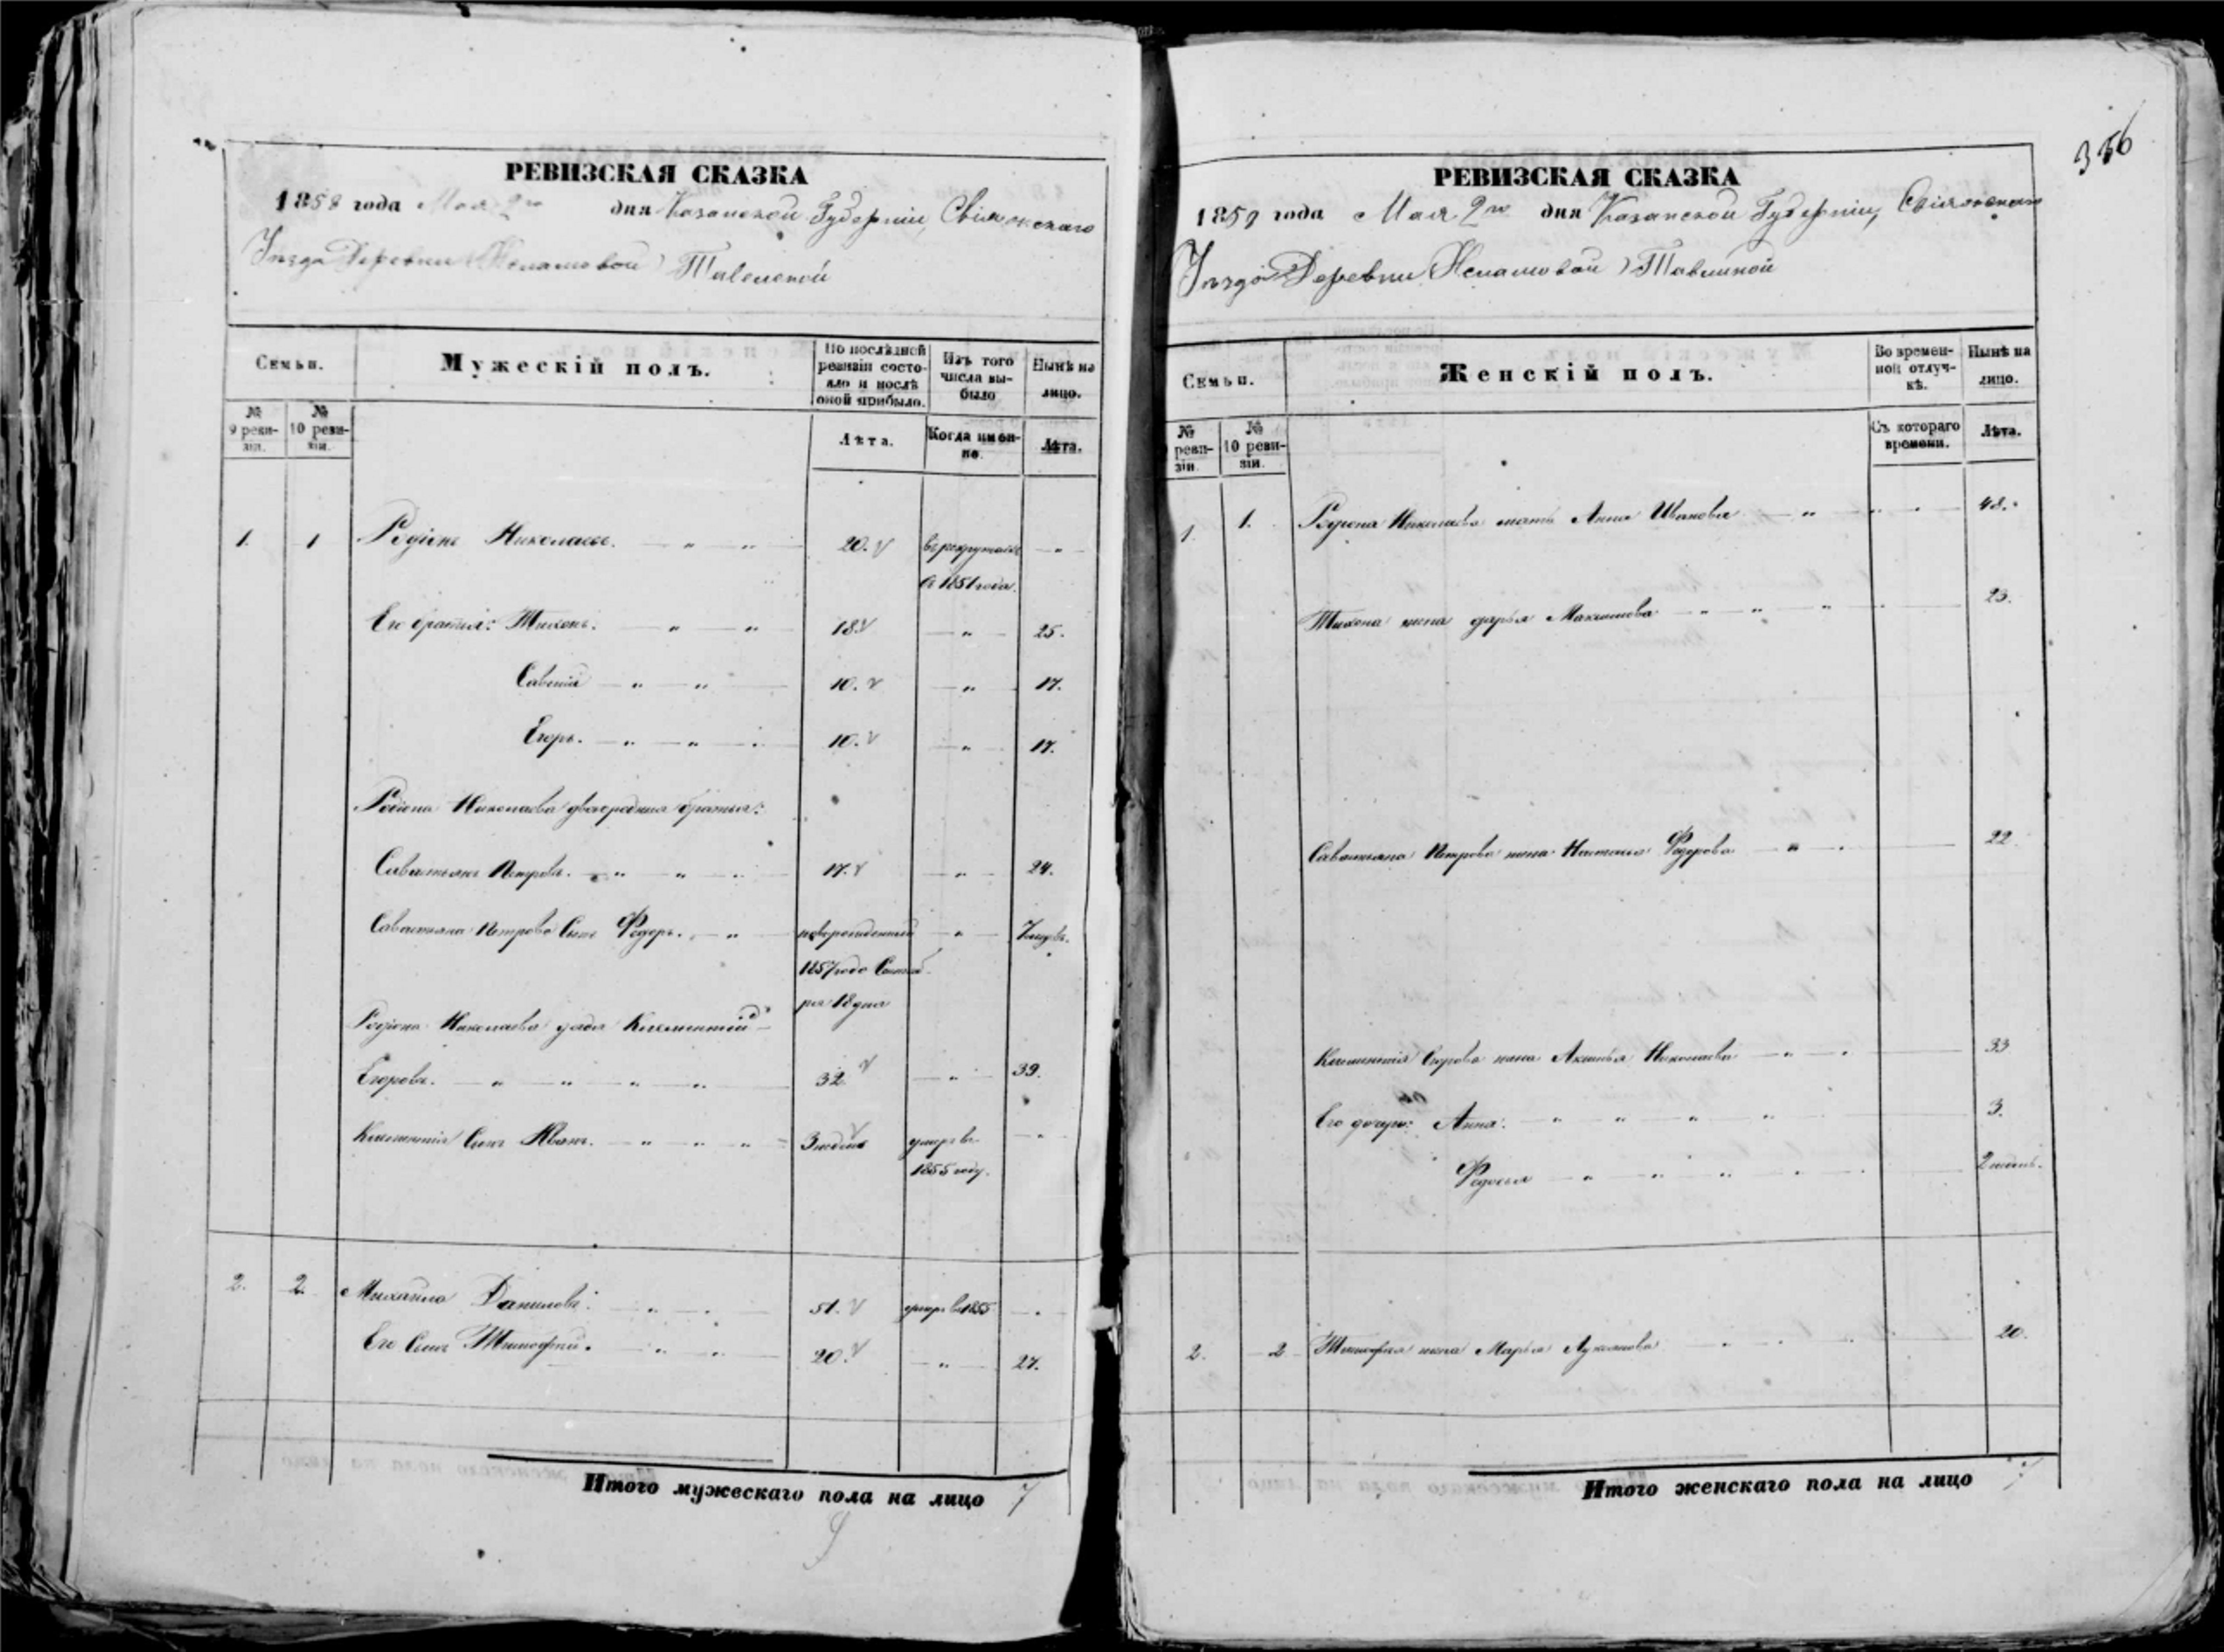 РЕВИЗСКАЯ СКАЗКА
1858 года Мая 2го дня Казанской Губернии, Свіяжскаго
Уезда Деревни
Семьи.
Мужескій полъ.
По послѣдней ревизіи состояло и послѣ оной прибыло.
Изъ того числа выбыло
Нынѣ на лицо.
№ 9 ревизіи.
№ 10 ревизіи.
Лѣта.
Когда именно.
Лѣта.
1. 1 Родіонъ Николаевъ. — „ „ — 20. в рекрутахъ — „ —
с 1851 года.
Его братья: Тихонъ. — „ — „ 18. — „ — 25.
Савелій — „ — „ — 10. — „ — 17.
Егоръ. — „ — „ — 10. — „ — 17.
Родіона Николаева двоюродныя братья:
Савастьянъ Петровъ. — „ „ — 17. — „ — 24.
Савастьяна Петрова Сынъ Федоръ. — „ — новорожденный — „ —
1857 года Сентяб
ря 18 дня
Родіона Николаева дядя Климентій
Егоровъ. — „ — „ — „ — „ 32 — „ — 39.
Климентія Сынъ Иванъ. — „ — „ — „ 3 недель умеръ въ — „
1855 году.
2. 2. Михайло Даниловъ. — „ — 51. умеръ в 1855 — „
Его Сынъ Тимофей. — „ — „ — 20. — „ — 27.
Итого мужескаго пола на лицо 7
356
РЕВИЗСКАЯ СКАЗКА
1858 года Мая 2го дня Казанской Губерніи, Свіяжскаго
Уезда Деревни
Семьи.
Женскій полъ.
Во временной отлучкѣ.
Нынѣ на лицо.
№ ревизіи.
№ 10 ревизіи.
Съ котораго времени.
Лѣта.
1. 1. Родіона Николаева мать Анна Иванова — „ — 48.
Тихона жена дарья Максимова — „ — „ — „ 23.
Савастьяна Петрова жена Настасья Федорова — „ — 22.
Климентія Егорова жена Аксинья Николаева — „ — 33
Его дочери: Анна. — „ — „ — „ — „ 3.
Федосья — „ — „ — „ — „ — 2
2. 2 Тимофея жена Марья Лукьянова — „ — 20.
Итого женскаго пола на лицо 7